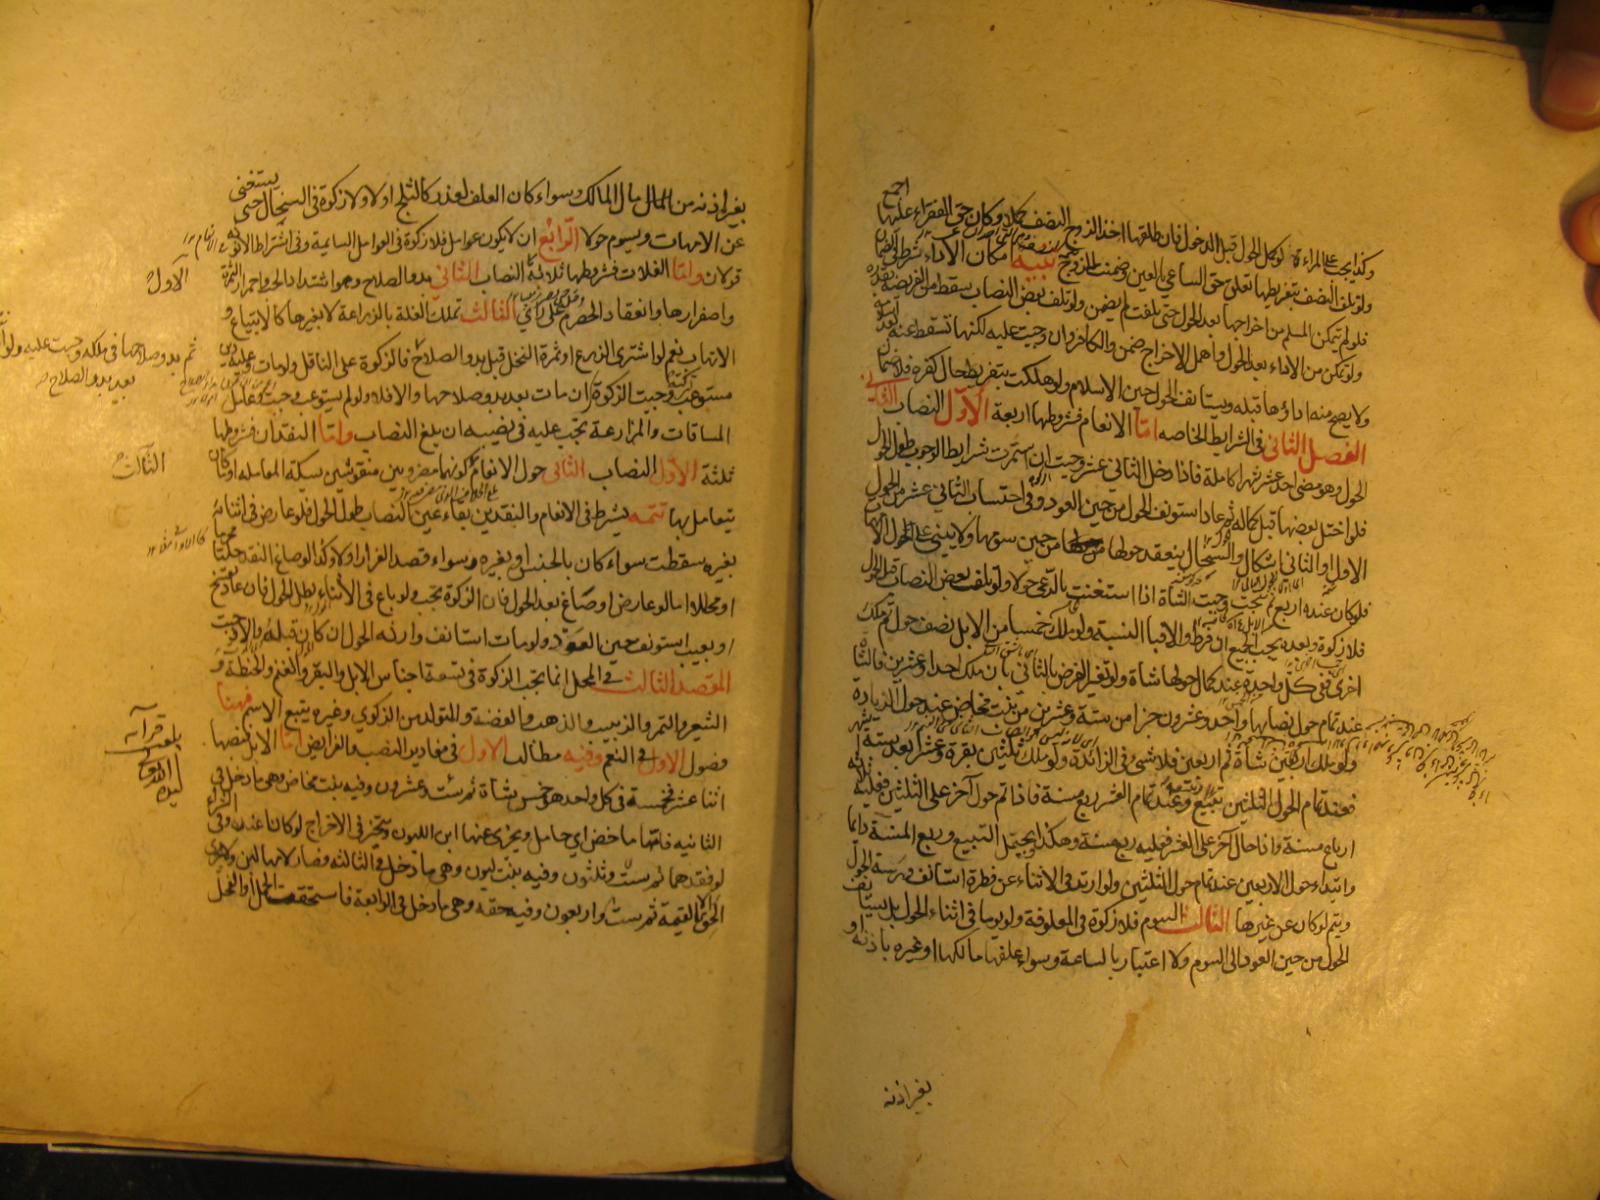 اجمع
وكذا يجب على المراة لو كمل الحول قبل الدخول فان طلقها اخذ الزوج النصف كملا وكان حق الفقراء عليها
ولو تلف النصف بتفريطها تعلق حق الساعي بالعين وضمنت للزوج تنبيه امكان الاداء شرط في الضمان
فلو لم يتمكن المسلم من اخراجها بعد الحول حتى تلفت لم يضمن ولو تلف بعض النصاب سقط من الفريضة بقدره
ولو تمكن من الاداء بعد الحول واهمل الاخراج ضمن والكافر وان وجبت عليه لكنها تسقط عنه بعد اسلامه
ولا يصح منه اداؤها قبله ويستانف الحول حين الاسلام ولو هلكت بتفريطه حال كفره فلا ضمان
الفصل الثاني في الشرايط الخاصه اما الانعام فشروطها اربعة الاول النصاب الثاني
الحول وهو مضى احد عشر شهرا كاملة فاذا دخل الثاني عشر وجبت ان استمرت شرايط الوجوب طول الحول
فلو اختل بعضها قبل كماله ثم عاد استونف الحول من حين العود وفي احتساب الثاني عشر من الحول
الاول او الثاني اشكال والسخال ينعقد حولها من حين سومها ولا يبنى على حول الامهات
فلو كان عنده اربع ثم نتجت وجبت الشاة اذا استغنت بالرعي حولا ولو تلف بعض النصاب قبل الحول
فلا زكوة وبعده يجب الجميع ان فرط والا فبالنسبة ولو ملك خمسا من الابل نصف حول ثم ملك
اخرى ففي كل واحدة عند كمال حولها شاة ولو تغير الفرض بالثاني بان ملك احدا وعشرين فالشاة
عند تمام حول نصابها واحد وعشرون جزا من ستة وعشرين من بنت مخاض عند حول الزيادة
ولو ملك اربعين شاة ثم اربعين فلا شيء في الزائدة ولو ملك ثلثين بقرة وعشرا بعد ستة اشهر
فعند تمام الحول الثلثين تبيع وعند تمام العشر ربع مسنة فاذا تم حول آخر على الثلثين فعليه ثلاثة
ارباع مسنة واذا حال آخر على العشر فعليه ربع مسنة وهكذا ويحتمل التبيع وربع المسنة دايما
وابتداء حول الاربعين عند تمام حول الثلثين ولو ارتد في الاثناء عن فطرة استانف ورثته الحول
ويتم لو كان عن غيرها الثالث السوم فلا زكوة في المعلوفة ولو يوما في اثناء الحول بل يستانف
الحول من حين العود الى السوم ولا اعتبار بالساعة وسواء علفها مالكها او غيره باذنه او
بغير اذنه
بغير اذنه من المال مال المالك وسواء كان العلف لعذر كالثلج او لا ولا زكوة في السخال حتى يستغنى
عن الامهات ويسوم حولا الرابع ان لا يكون عوامل فلا زكوة في العوامل السايمة وفي اشتراط الانوثة
قولان واما الغلات فشروطها ثلاثة النصاب الثاني بدو الصلاح وهو اشتداد الحب واحمرار الثمرة
الاول
واصفرارها وانعقاد الحصرم على راي الثالث تملك الغلة بالزراعة لا بغيرها كالابتياع و
الاتهاب نعم لو اشترى الزرع او ثمرة النخل قبل بدو الصلاح فالزكوة على الناقل ولو مات وعليه دين
ثم بدو صلاحها في ملكه وجبت عليه
بعد بدو الصلاح
مستوعب وجبت الزكوة ان مات بعد بدو صلاحها والا فلا ولو لم يستوعب وجبت وعامل
المساقات والمزارعة تجب عليه في نصيبه ان بلغ النصاب واما النقدان فشروطها
ثلثة الاول النصاب الثاني حول الانعام كونهما مضروبين منقوشين بسكة المعاملة او كان
الثالث
يتعامل بها تتمه يشترط في الانعام والنقدين بقاء عين النصاب طول الحول فلو عارض في اثنائه
بغيره سقطت سواء كان بالجنس او بغيره وسواء قصد الفرار او لا وكذا لو صاغ النقد حليا
او محللا اما لو عارض او صاغ بعد الحول فان الزكوة تجب ولو باع في الاثناء بطل الحول فان عاد بفسخ
او بعيب استونف حين العود ولو مات استانف وارثه الحول ان كان قبله والا وجبت
المقصد الثالث في المحل انما تجب الزكوة في تسعة اجناس الابل والبقر والغنم والحنطة و
الشعير والتمر والزبيب والذهب والفضة والمتولد من الزكوي وغيره يتبع الاسم فهنا
فصول الاول في النعم وفيه مطالب الاول في مقادير النصب والفرايض اما الابل فنصبها
اثنا عشر خمسة في كل واحد هو خمس شاة ثم ست وعشرون وفيه بنت مخاض وهي ما دخل في
الثانية فامها ماخض اي حامل ويجزي عنها ابن اللبون ويتخير في الاخراج لو كان عنده وفي الشراء
لو فقدهما ثم ست وثلثون وفيه بنت لبون وهي ما دخل في الثالثه فصار لامها لبن ولا يجزي
الحق الا بالقيمة ثم ست واربعون وفيه حقه وهي ما دخل في الرابعة فاستحقت الحمل او الفحل